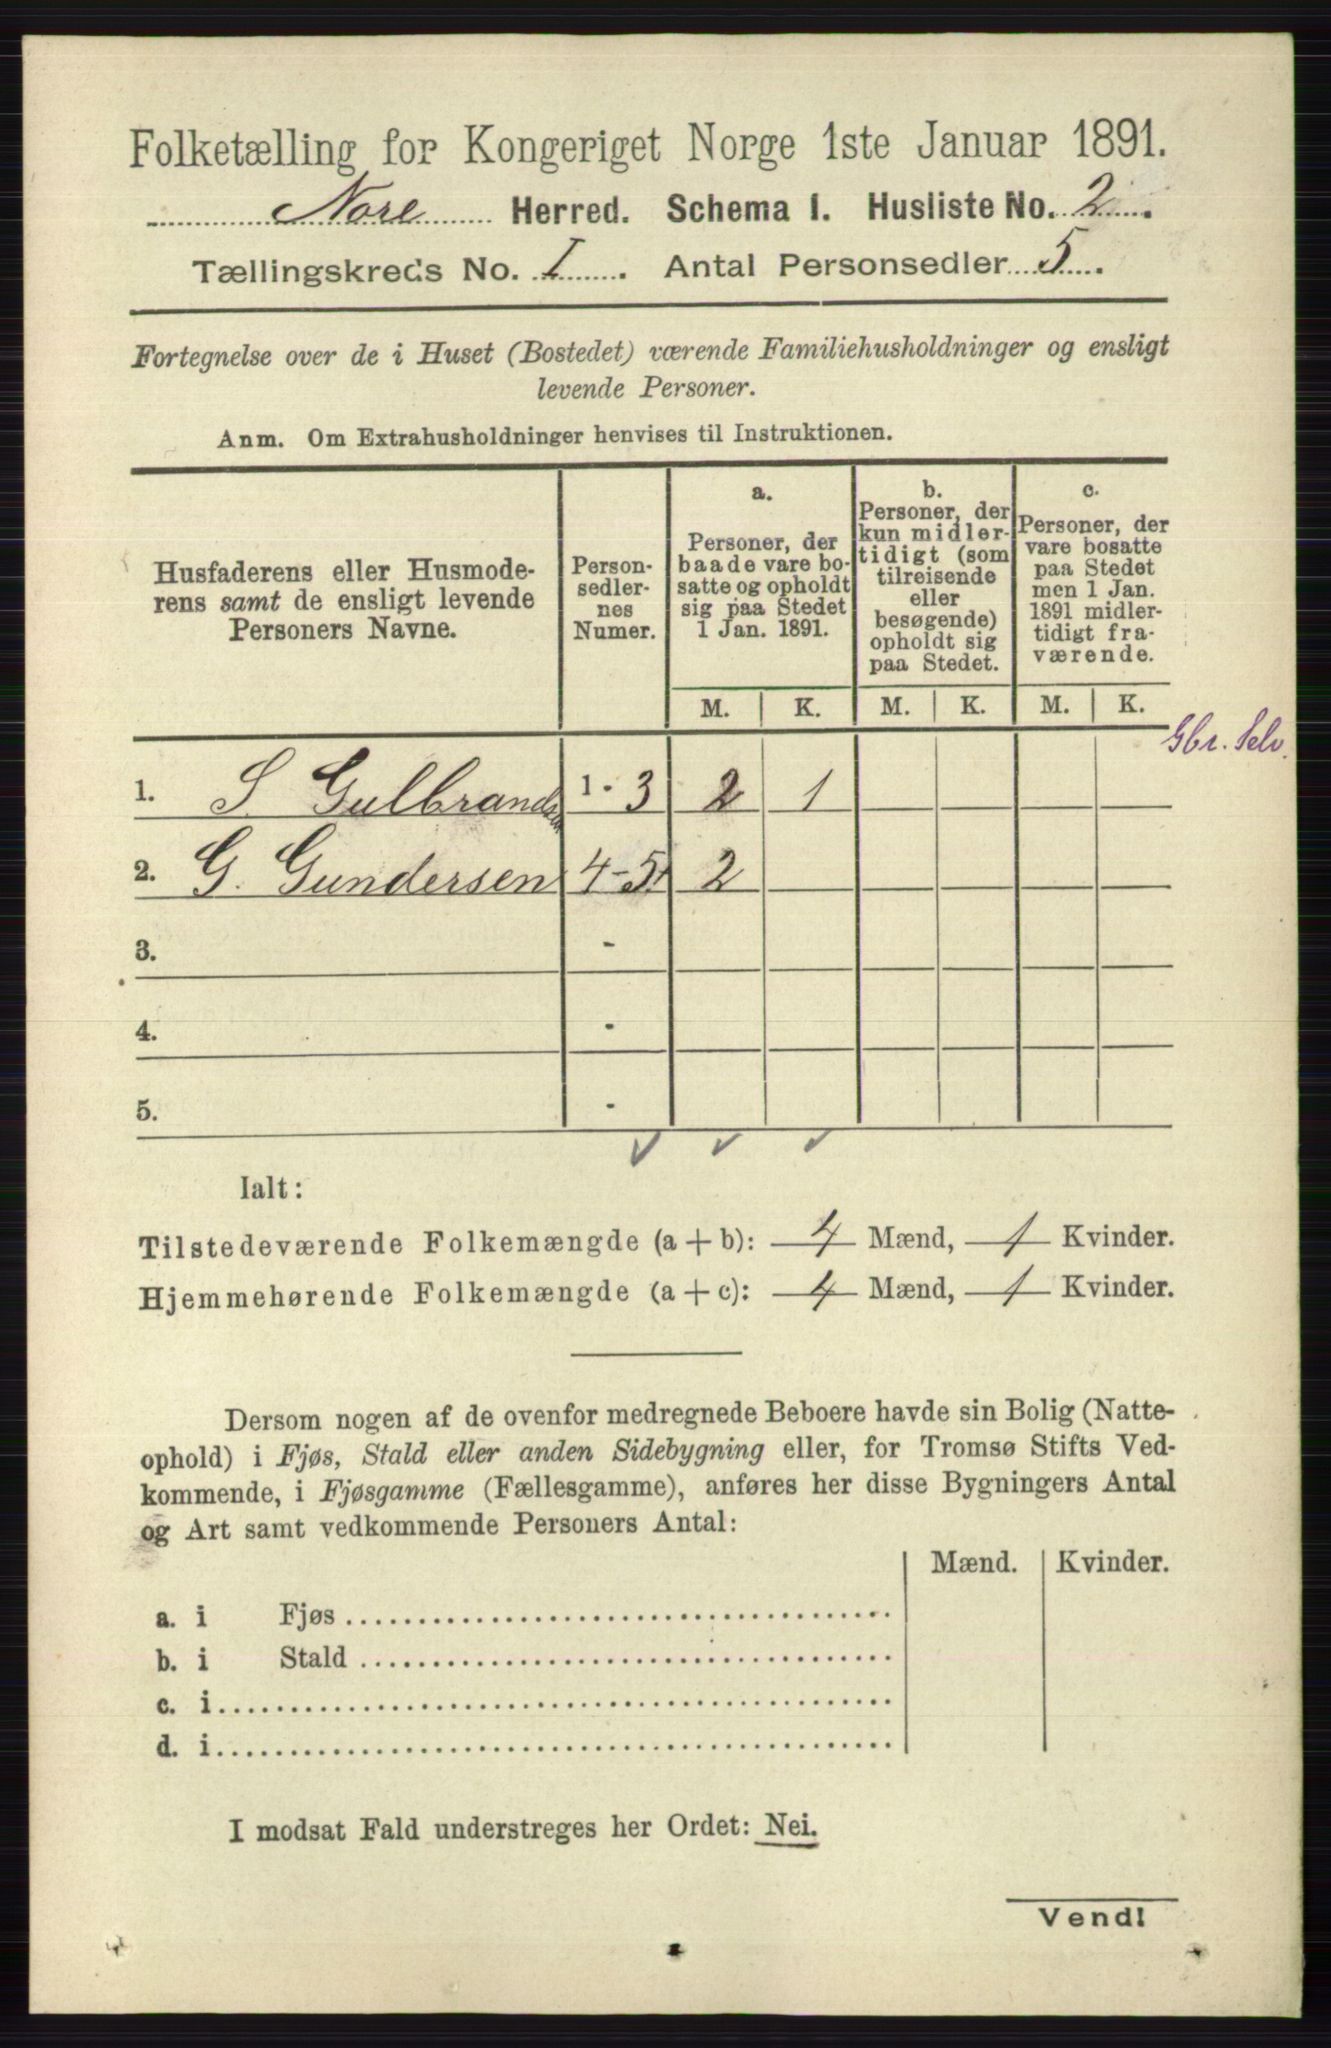 Folketælling for Kongeriget Norge 1ste Januar 1891.
Nore Herred. Schema I. Husliste No. 2.
Tællingskreds No. I. Antal Personsedler 5.
Fortegnelse over de i Huset (Bostedet) værende Familiehusholdninger og ensligt
levende Personer.
Anm. Om Extrahusholdninger henvises til Instruktionen.
Husfaderens eller Husmode-
rens samt de ensligt levende
Personers Navne.
Person-
sedler-
nes
Numer.
a.
Personer, der
baade vare bo-
satte og opholdt
sig paa Stedet
1 Jan. 1891.
b.
Personer, der
kun midler-
tidigt (som
tilreisende
eller
besøgende)
opholdt sig
paa Stedet.
c.
Personer, der
vare bosatte
paa Stedet
men 1 Jan.
1891 midler-
tidigt fra-
værende.
M. K. M. K. M. K.
Gbr. Selv.
1. S. Gulbrandsen 1 - 3 2 1
2. G. Gundersen 4-5 2
3. -
4. -
5. -
Ialt:
Tilstedeværende Folkemængde (a + b): 4 Mænd, 1 Kvinder.
Hjemmehørende Folkemængde (a + c): 4 Mænd, 1 Kvinder.
Dersom nogen af de ovenfor medregnede Beboere havde sin Bolig (Natte-
ophold) i Fjøs, Stald eller anden Sidebygning eller, for Tromsø Stifts Ved-
kommende, i Fjøsgamme (Fællesgamme), anføres her disse Bygningers Antal
og Art samt vedkommende Personers Antal:
Mænd. Kvinder.
a. i Fjøs
b. i Stald
c. i
d. i
I modsat Fald understreges her Ordet: Nei.
Vend!